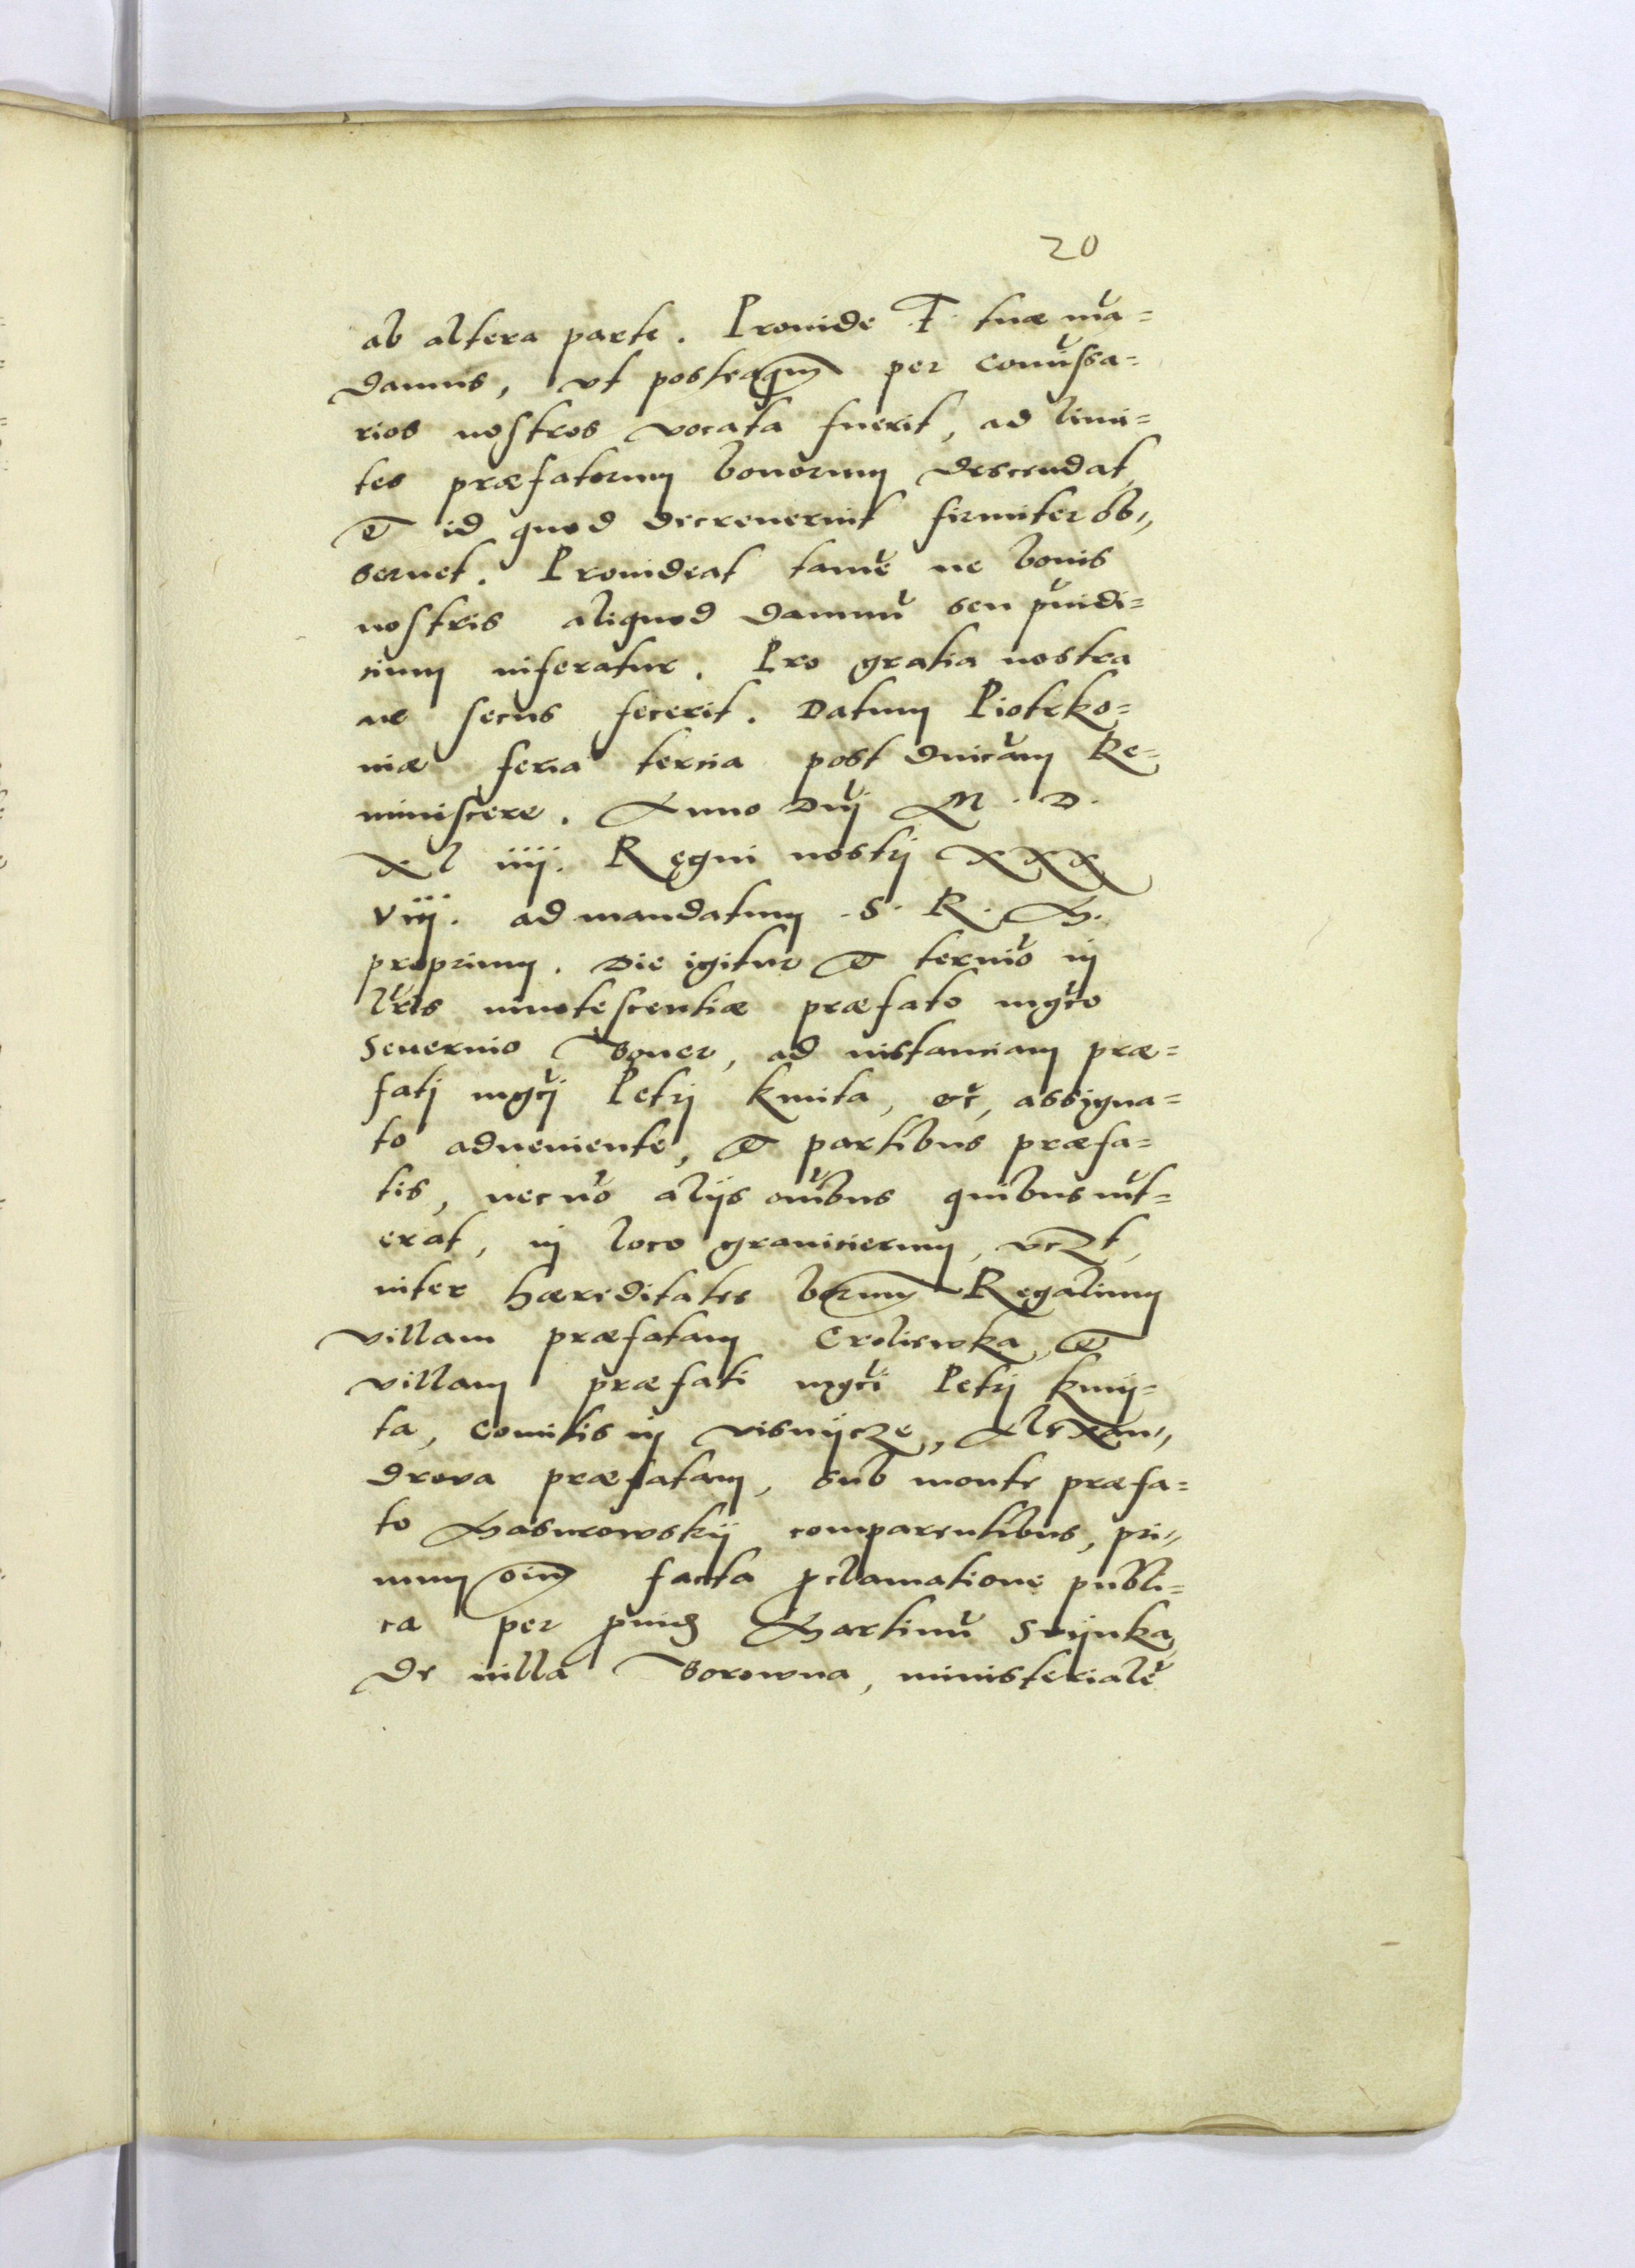 20
ab altera parte. Prouide F. tuæ mā=
damus, vt posteaqm̄ per com̄issa=
rios nostros vocata fuerit, ad limi=
tes præfatorum bonorum descendat,
et id quod decreuerint firmiter ob„
seruet. Prouideat tamē ne bonis
nostris aliquod damnū seu p̄iudi=
cium inferatur. Pro gratia nostra
ne secus fecerit. Datum Piotrko=
niæ feria tercia post dnicam Re=
miniscere. Anno Dnj M. D.
XL iiij. Regni nostrj XXX
viij. ad mandatum S. R. M.
proprium. Die igitur et termīo in
lr̄is innotescentiæ præfato mgco
Seuerino Boner, ad instanciam præ=
fatj mgcj Petrj Kmita, etc, assigna=
to adueniente, et partibus præfa=
tis, necnō alijs om̄ibus quibus int=
erat, in loco granicierum, vczt,
inter hæreditates bonorum Regalium
villam præfatam Croliswka, et
villam præfati mgci Petrj Kmij=
ta, Comitis in Visnijcze, Alexan„
drova præfatam, sub monte præfa=
to comparentibus, pri„
mum oim̄ facta proclamatione publi=
ca per prouid Martinū Svijnka,
de uilla Borowna, ministerialē